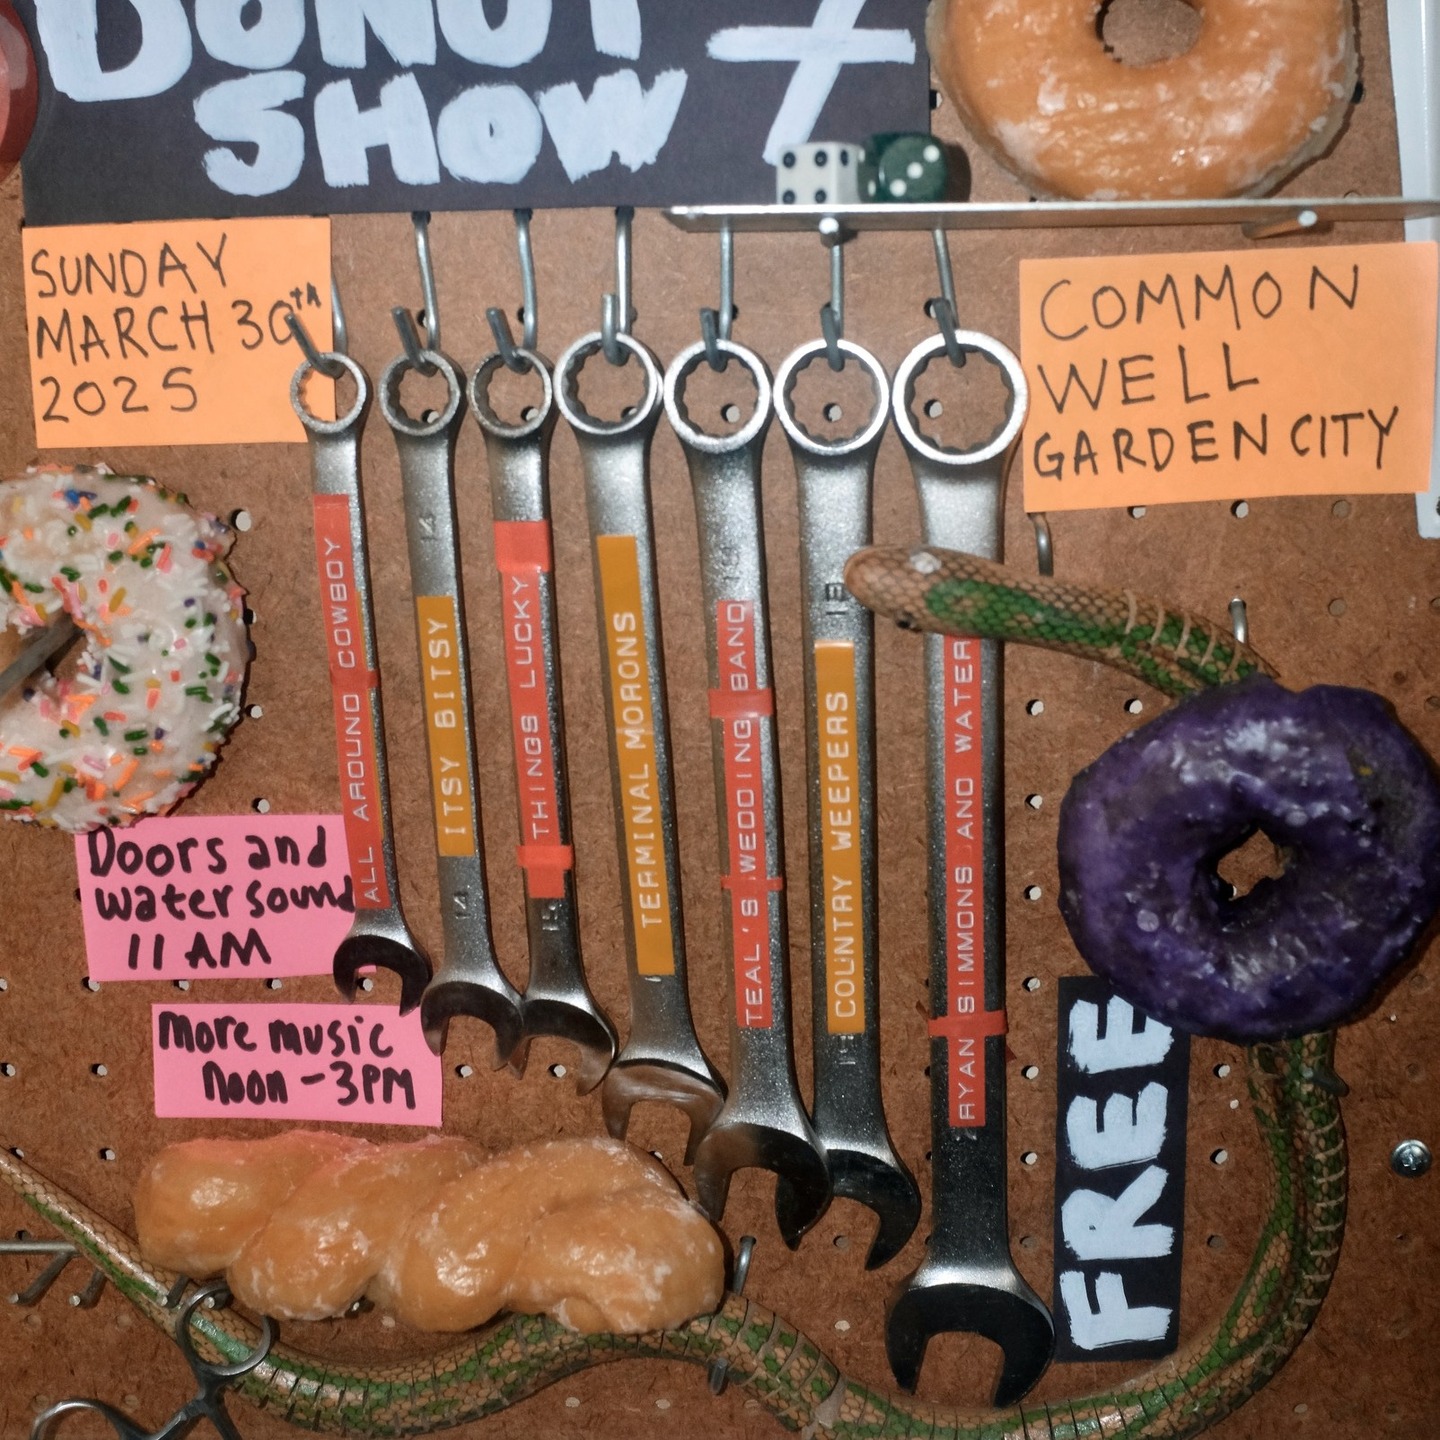 DONUT
SHOW 7
SUNDAY
MARCH 30TH
2025
COMMON
WELL
GARDEN CITY
ALL AROUND COWBOY
ITSY BITSY
THINGS LUCKY
TERMINAL MORONS
TEAL'S WEDDING BAND
COUNTRY WEEPERS
RYAN SIMMONS AND WATER
14
14
19
Doors and
water sound
11 AM
more music
noon - 3PM
FREE